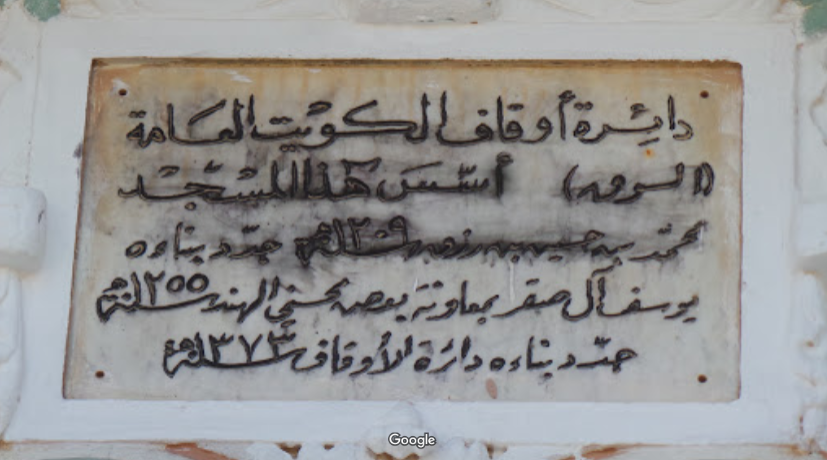 دائرة أوقاف الكويت العامة
(السوق) أسّس هذا المسجد
محمّد بن حسين بن رزق سنة ١٢٠٩هـ جدّد بناءه
يوسف آل صقر بمعاونة بعض محسني الهند سنة ١٢٥٥هـ
جدّد بناءه دائرة الأوقاف سنة ١٣٧٣هـ
Google